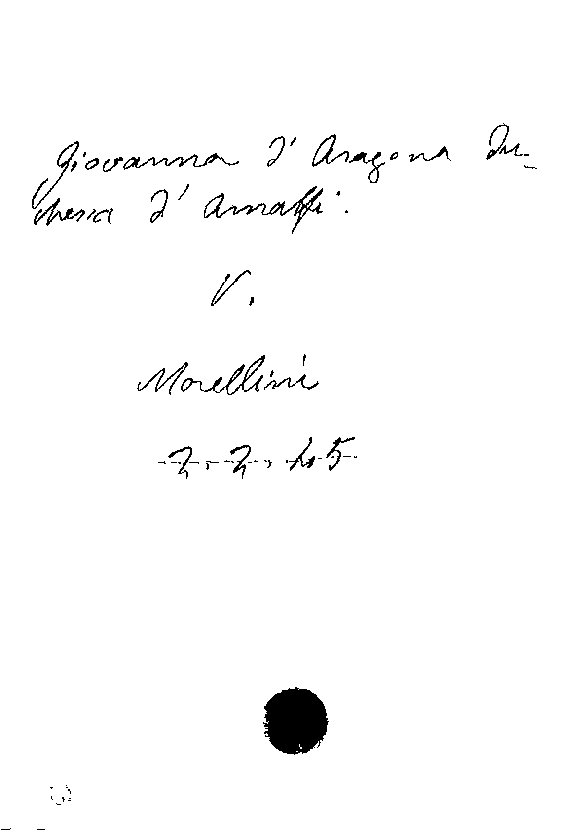 Giovanna d'Aragona Du-
chessa d'Amalfi.
V.
Morellini
2.2.45